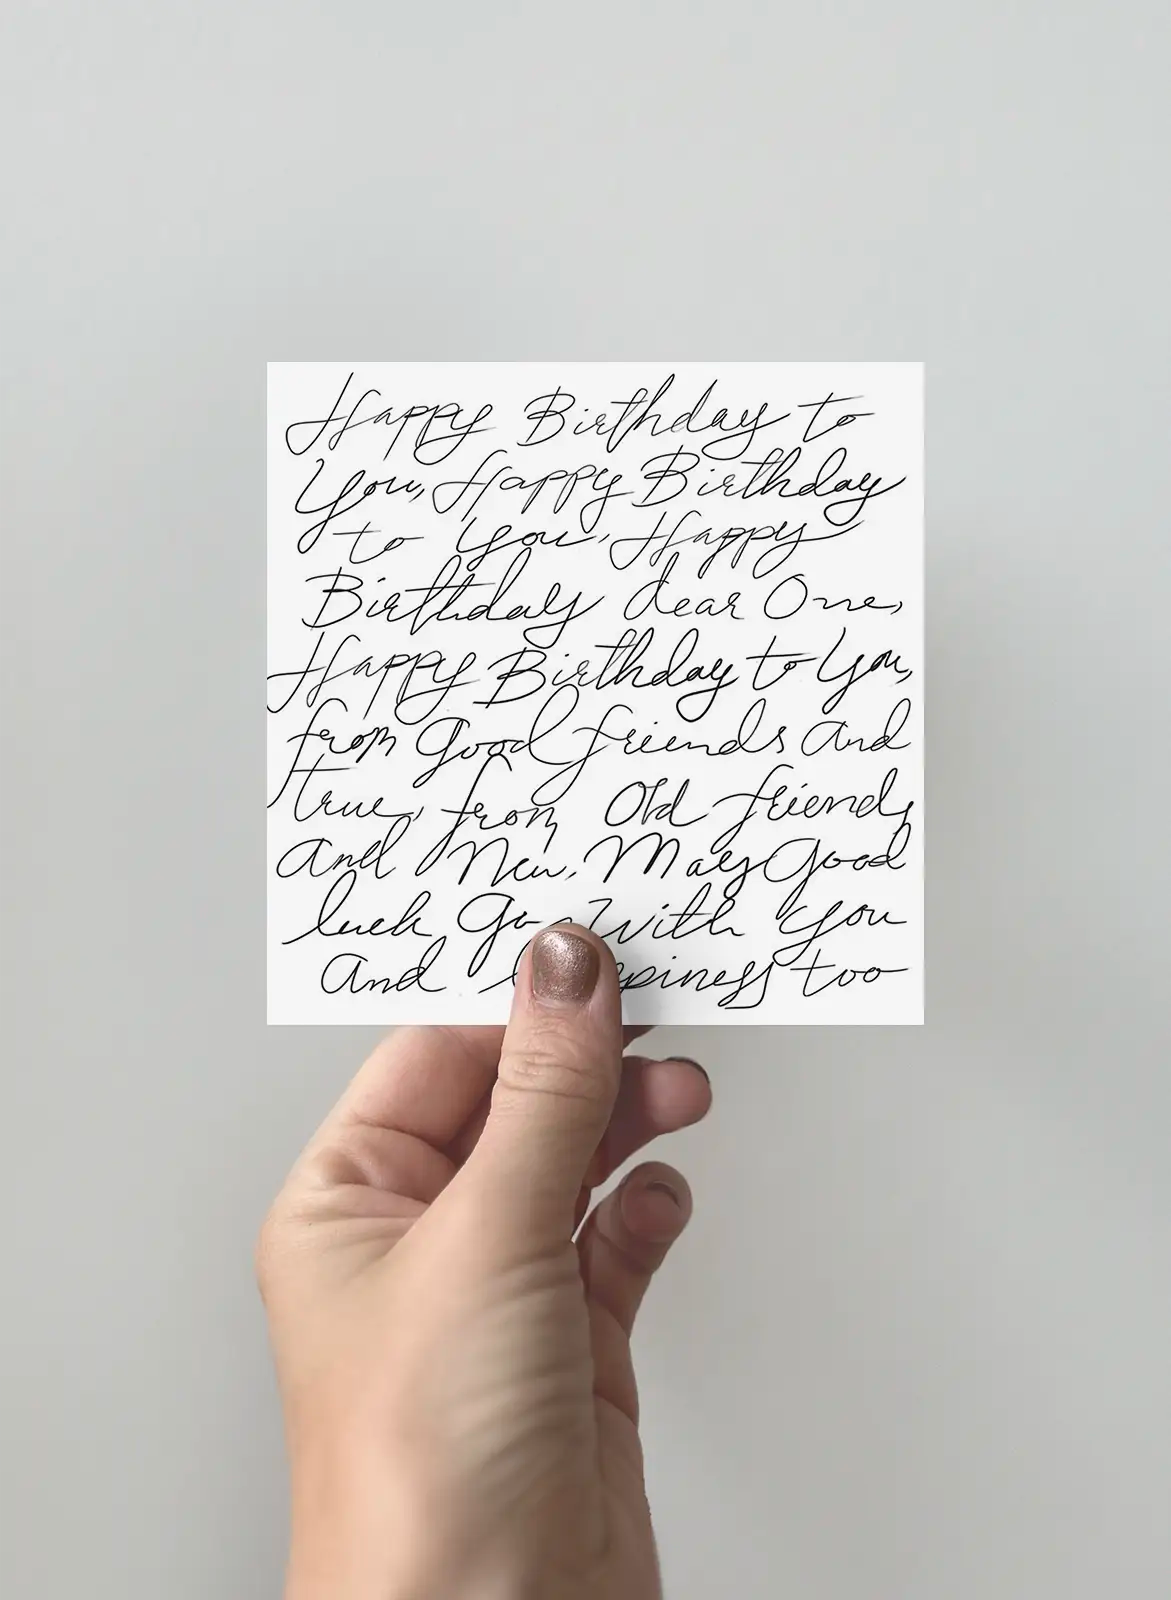 Happy Birthday to
You, Happy Birthday
to you, Happy
Birthday dear One,
Happy Birthday to You,
from Good friends and
true, from Old friends
and New, May Good
luck Go With you
And too